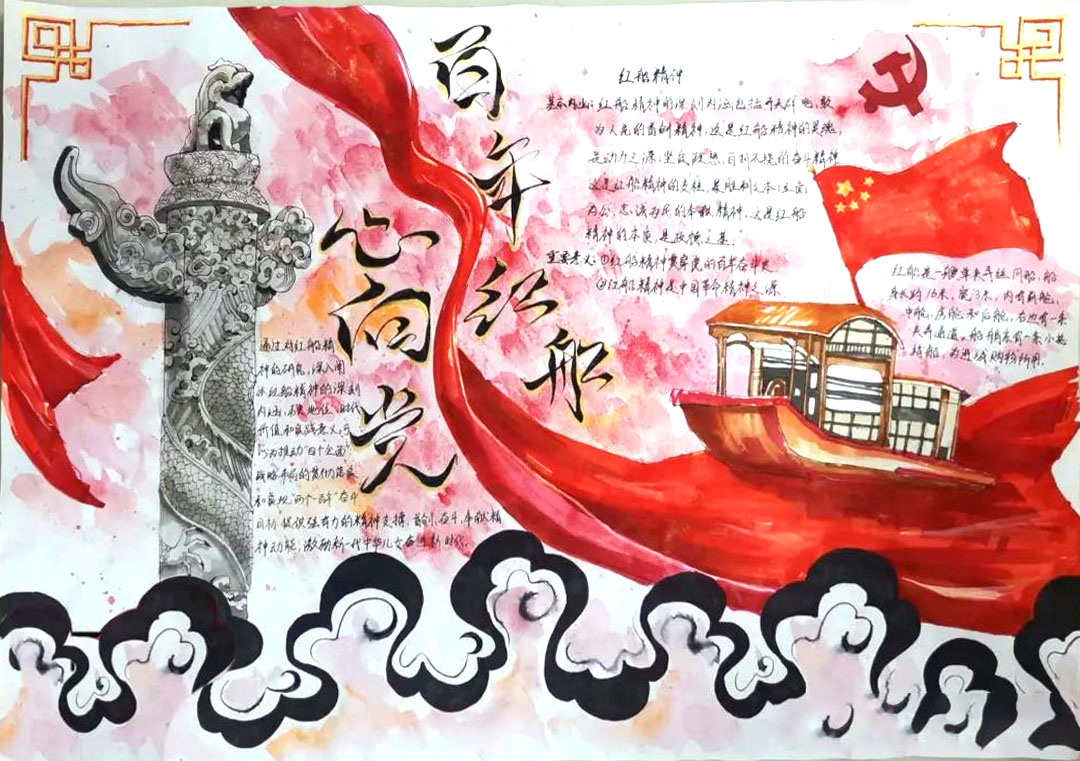 百年红船
心向党
红船精神
基本内涵：红船精神的深刻内涵包括开天辟地、敢
为人先的首创精神，这是红船精神的灵魂，
是动力之源，坚定理想、百折不挠的奋斗精神
这是红船精神的支柱，是胜利之本；立党
为公、忠诚为民的奉献精神，这是红船
精神的本质，是政德之基．
重要意义：①红船精神贯穿党的百年奋斗史
②红船精神是中国革命精神之源
红船是一艘单夹弄丝网船，船
身长约16米，宽3米，内有前舱、
中舱、房舱和后舱，右边有一条
夹弄通道。船艄尾有一条小拖
梢船，为进城购物所用．
通过对红船精
神的研究，深入阐
红船精神的深刻
内涵、历史地位、时代
价值和实践意义，可
以为推动“四个全面”
战略布局的贯彻落实
和实现“两个一百年”奋斗
目标提供强有力的精神支撑，首创、奋斗、奉献精
神动能，激励新一代中华儿女奋进新时代．